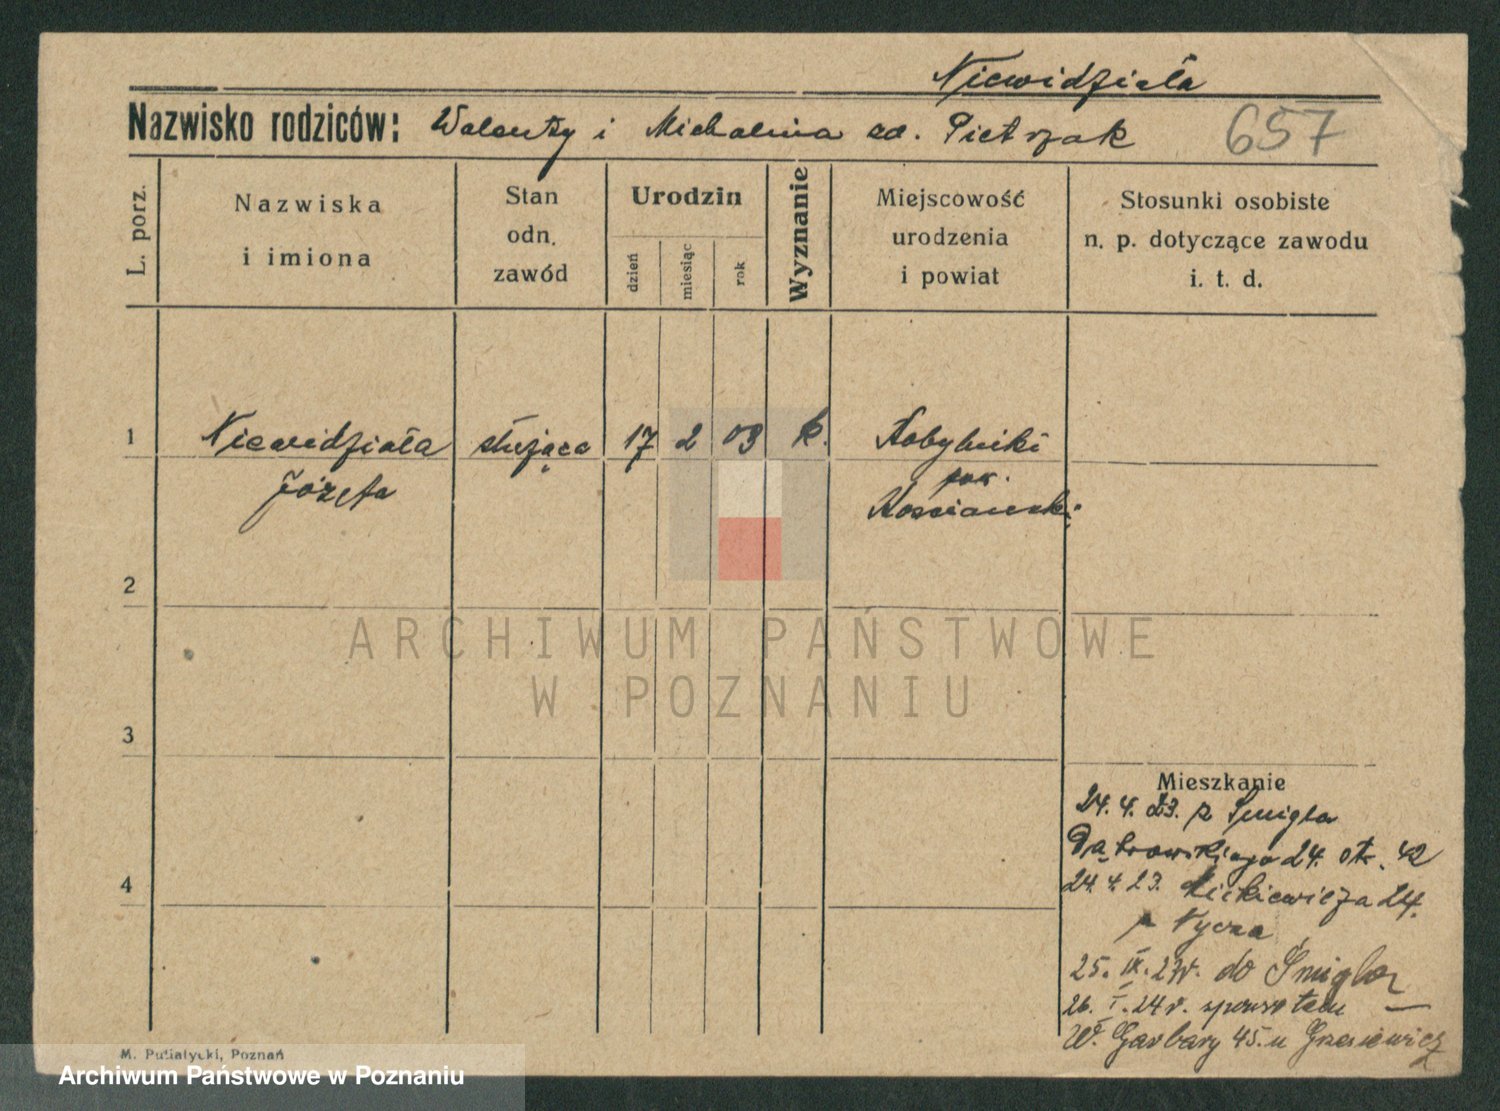 Niewidziała
Nazwisko rodziców: Walenty i Michalina zd. Pietrzak
657
L. porz.
Nazwiska
i imiona
Stan
odn.
zawód
Urodzin
dzień
miesiąc
rok
Wyznanie
Miejscowość
urodzenia
i powiat
Stosunki osobiste
n. p. dotyczące zawodu
i. t. d.
1
Niewidziała
Józefa
służąca
17
2
03
k.
Kobylniki
pow.
Kościański
2
ARCHIWUM PAŃSTWOWE
W POZNANIU
3
4
Mieszkanie
24. 4. 23. z Śmigla
Dąbrowskiego 24. 42
24. 4. 23. Mickiewicza 24.
Nycza
25. IX. 23r. do Śmigla
26. I. 24r. spowrotem
W. Garbary 45. u
M. Putiatycki, Poznań
Archiwum Państwowe w Poznaniu